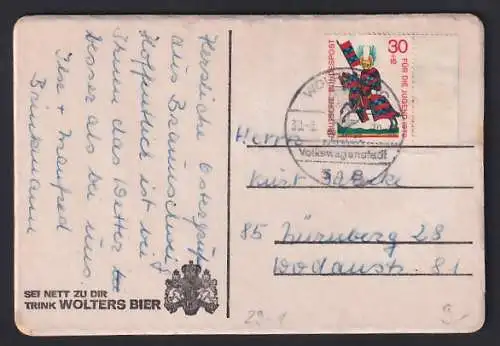 Herzliche Ostergrüße
aus Braunschweig
Hoffentlich ist bei
Ihnen das Wetter
besser als bei uns.
Ilse + Manfred
Brinkmann
SEI NETT ZU DIR
TRINK WOLTERS BIER
30
+15
DEUTSCHE BUNDESPOST
FÜR DIE JUGEND 1970
WOL
Volkswagenstadt
Herrn
Kurt
85 Nürnberg 28
Wodanstr. 81
29-1